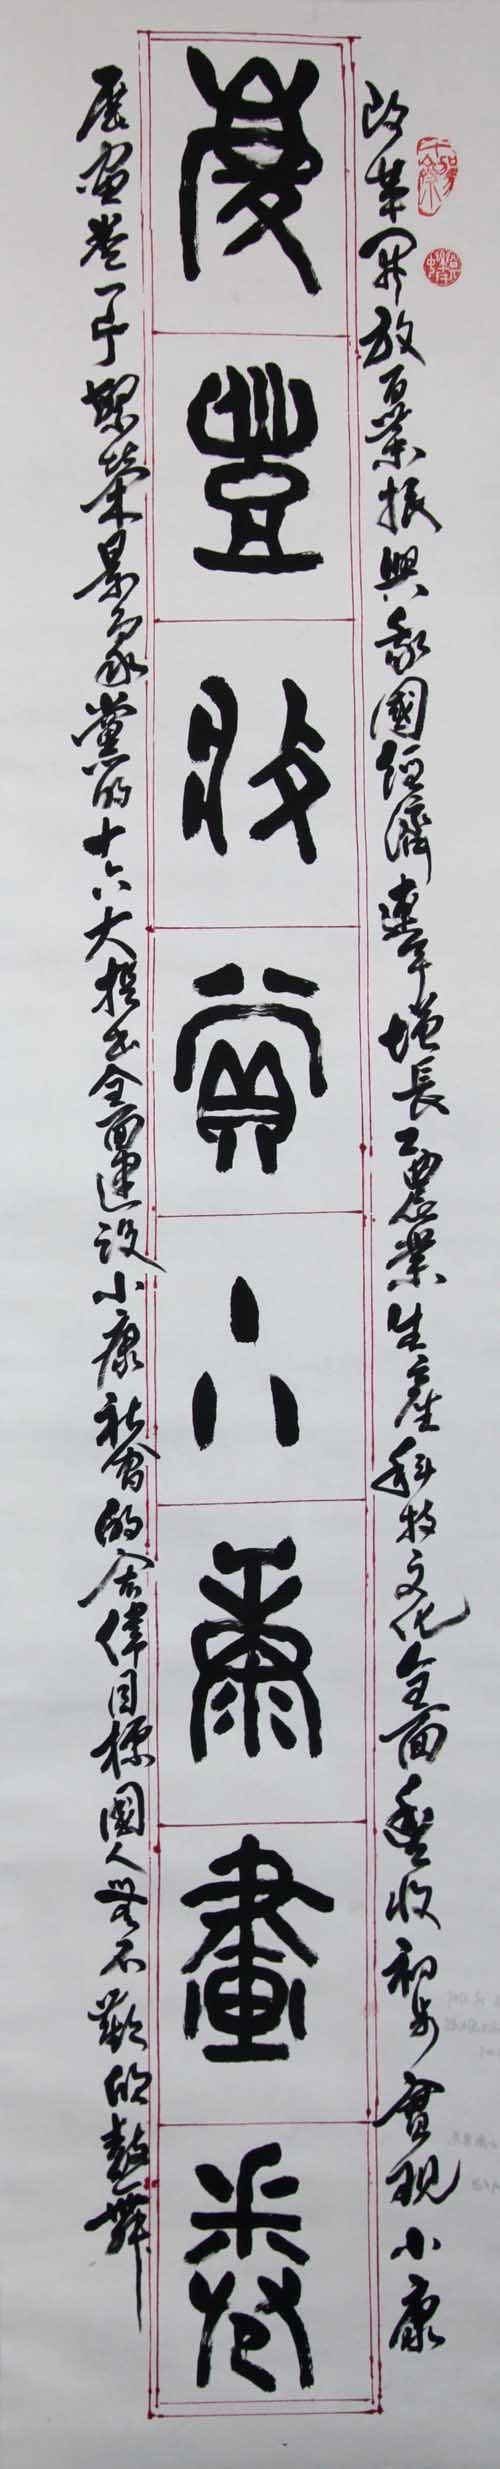 改革開放百業振興我國經濟連年增長工農業生產科技文化全面豐收初步實現小康
慶豐收賞小康畫卷
展畫卷一片繁榮景象黨的十六大提出全面建設小康社會的宏偉目標國人無不歡欣鼓舞